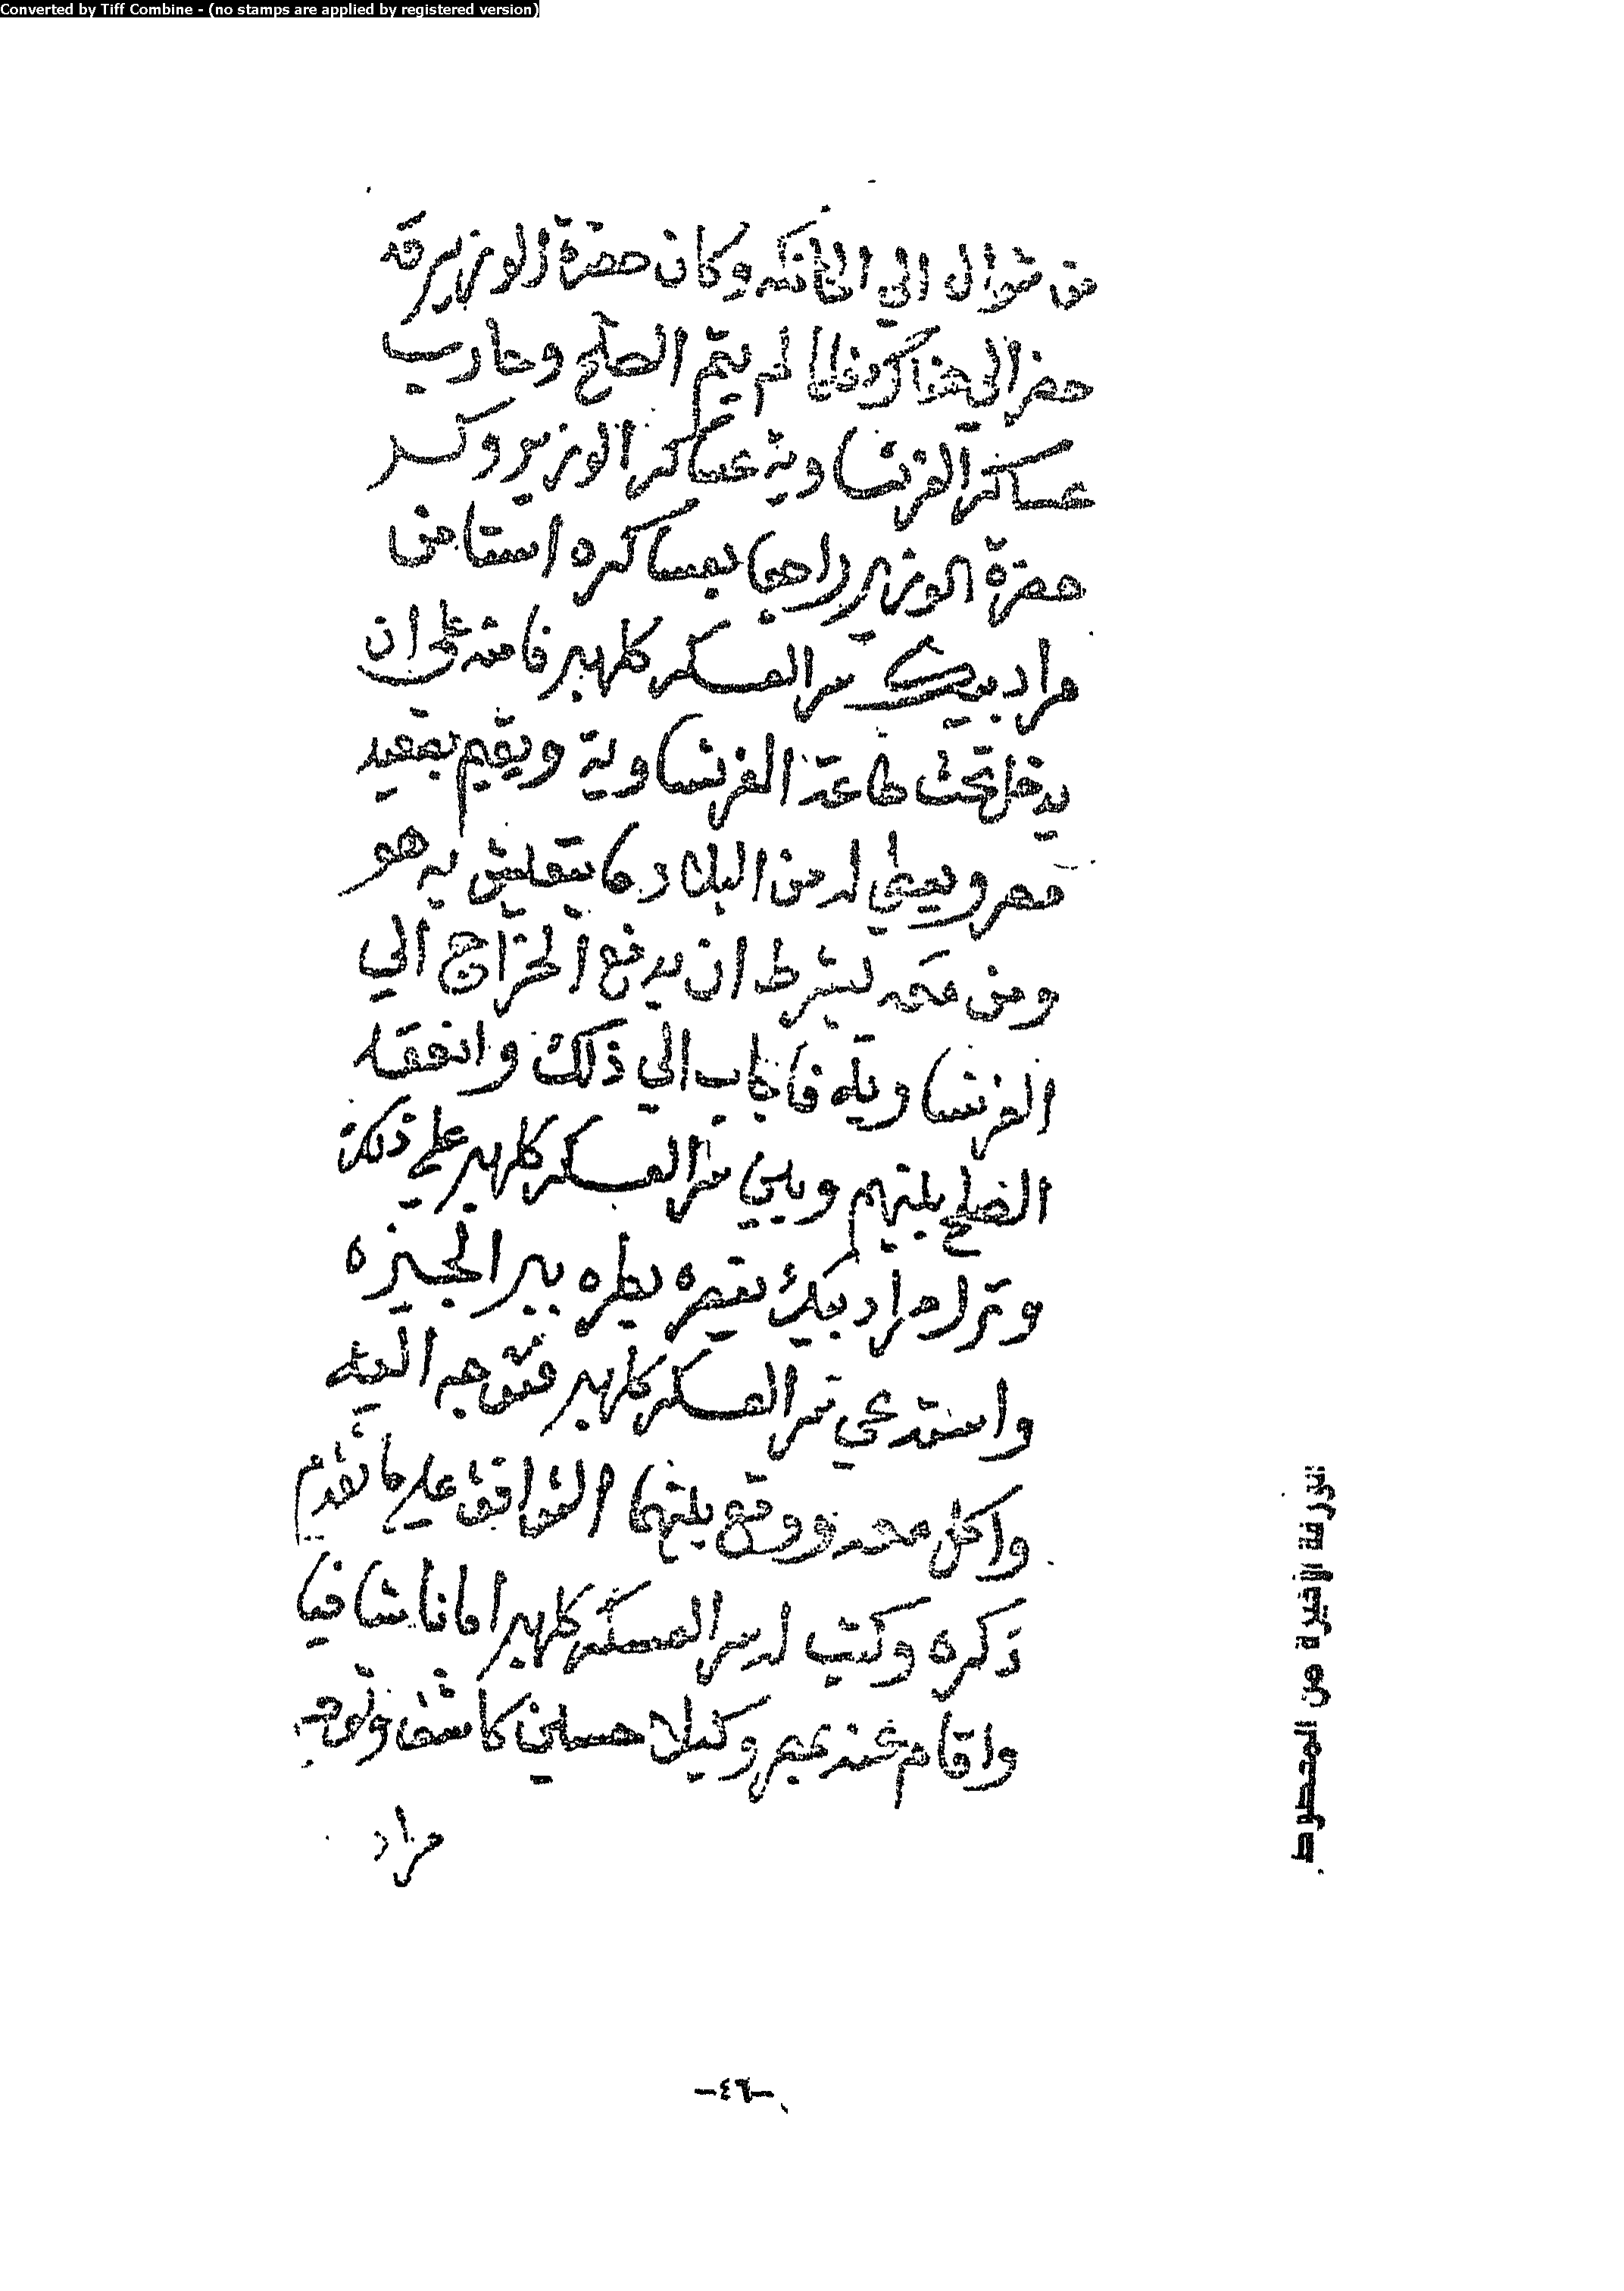 Converted by Tiff Combine - (no stamps are applied by registered version)
من شوال الي الخانكه وكان حضرة الوزير قد
حضر الي هناك فلما لم يتم الصلح وحارب
عساكر الفرنساوية عساكر الوزير وكسر
حضرة الوزير راجعا بعساكره استامن
مراد بيك سر العسكر كلهبر فامنه علي ان
يدخل تحت طاعة الفرنساوية ويقيم بصعيد
مصر ويعطي له من البلاد ما يتعلش به هو
ومن معه بشرط ان يدفع الخراج الي
الفرنساوية فاجاب الي ذلك وانعقد
الصلح بينهم وبين سر العسكر كلهبر علي ذلك
ونزل مراد بيك بقصره بطره ببر الجيزه
واستدعي سر العسكر كلهبر فتوجه اليه
واكل معه ووقع بينهما التوافق علي ما تقدم
ذكره وكتب له سر العسكر كلهبر امانا شافيا
واقام عنده بمصر وكيلا حسين كاشف وتوجه
مراد
الورقة الأخيرة من المخطوط
-٤٦-